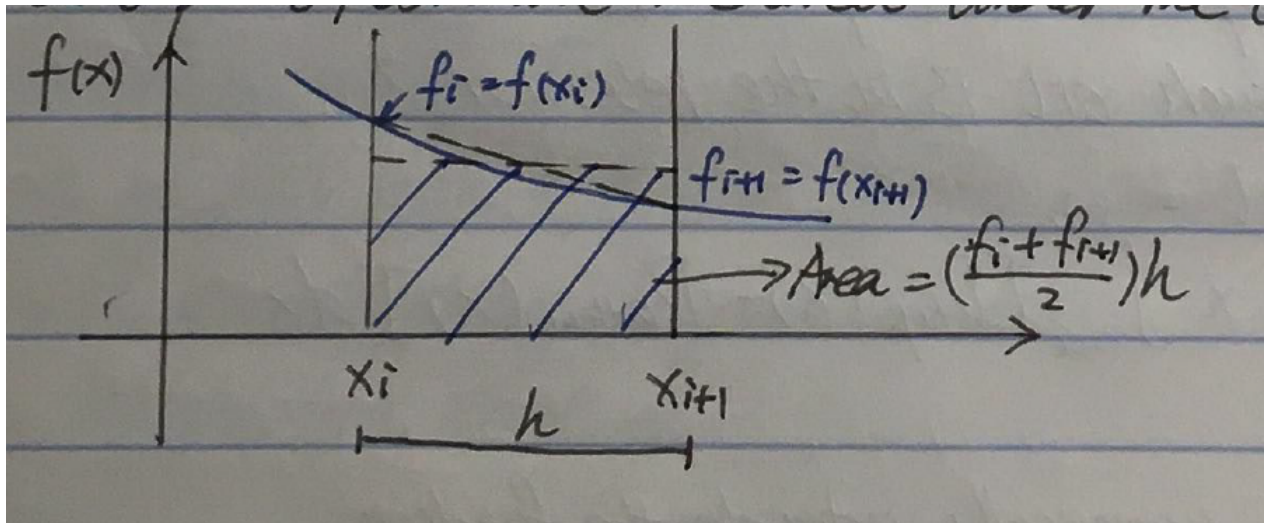 f(x)
fi = f(xi)
fi+1 = f(xi+1)
Area = (fi + fi+1 / 2)h
xi
xi+1
h